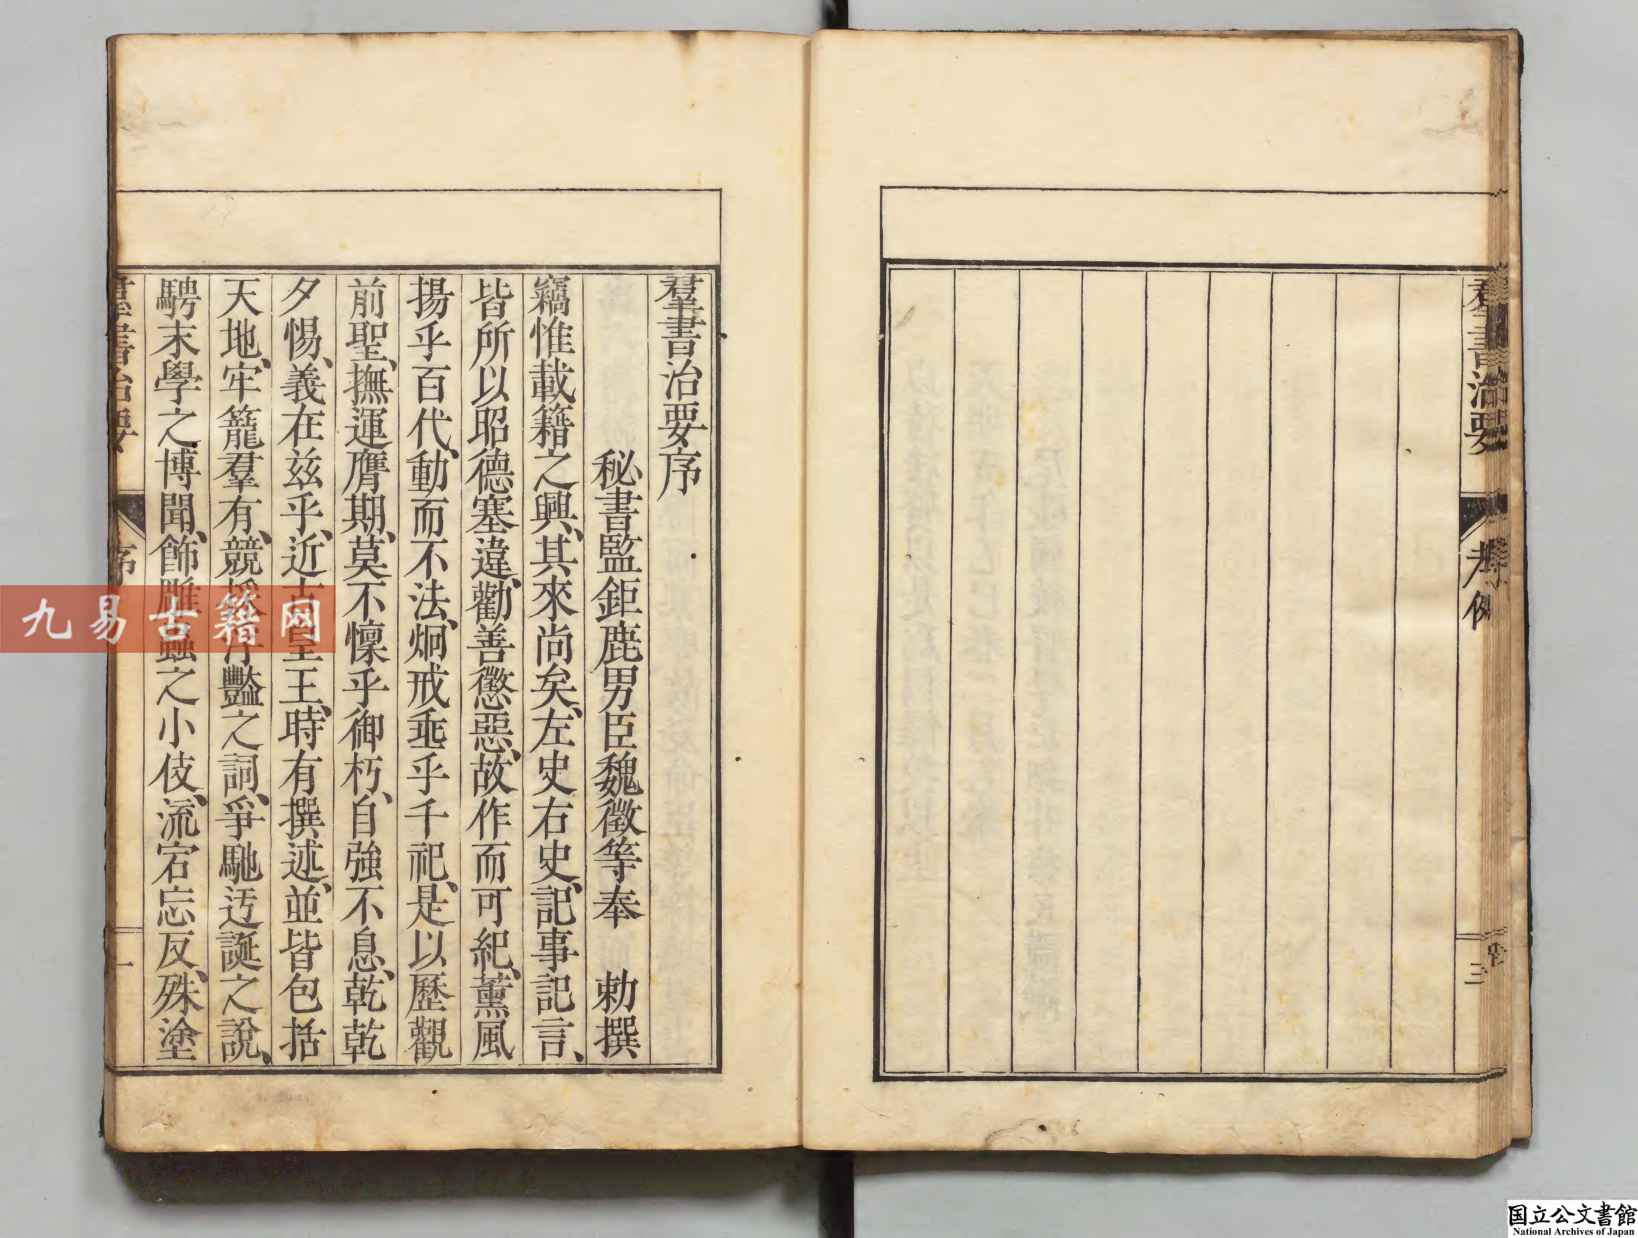 羣書治要
考例
三
羣書治要序
秘書監鉅鹿男臣魏徵等奉　勅撰
竊惟載籍之興、其來尚矣、左史右史、記事記言、
皆所以昭德塞違、勸善懲惡、故作而可紀、薰風
揚乎百代、動而不法、炯戒垂乎千祀、是以歷觀
前聖、撫運膺期、莫不懍乎御朽、自強不息、乾乾
夕惕、義在茲乎、近古皇王、時有撰述、並皆包括
天地、牢籠羣有、競採浮豔之詞、爭馳迃誕之說、
騁末學之博聞、飾雕蟲之小伎、流宕忘反、殊塗
羣書治要
序
一
九易古籍网
国立公文書館
National Archives of Japan